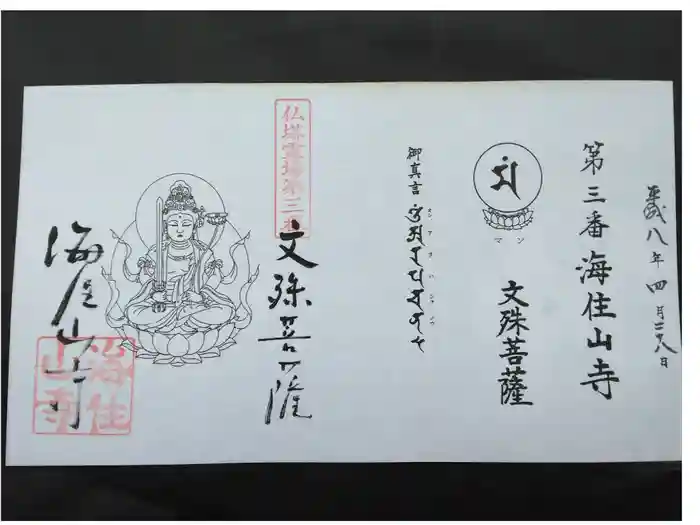 平成八年四月廿八日
第三番海住山寺
マン
文殊菩薩
御真言
仏塔霊場第三番
文殊菩薩
海住山寺
海住山寺